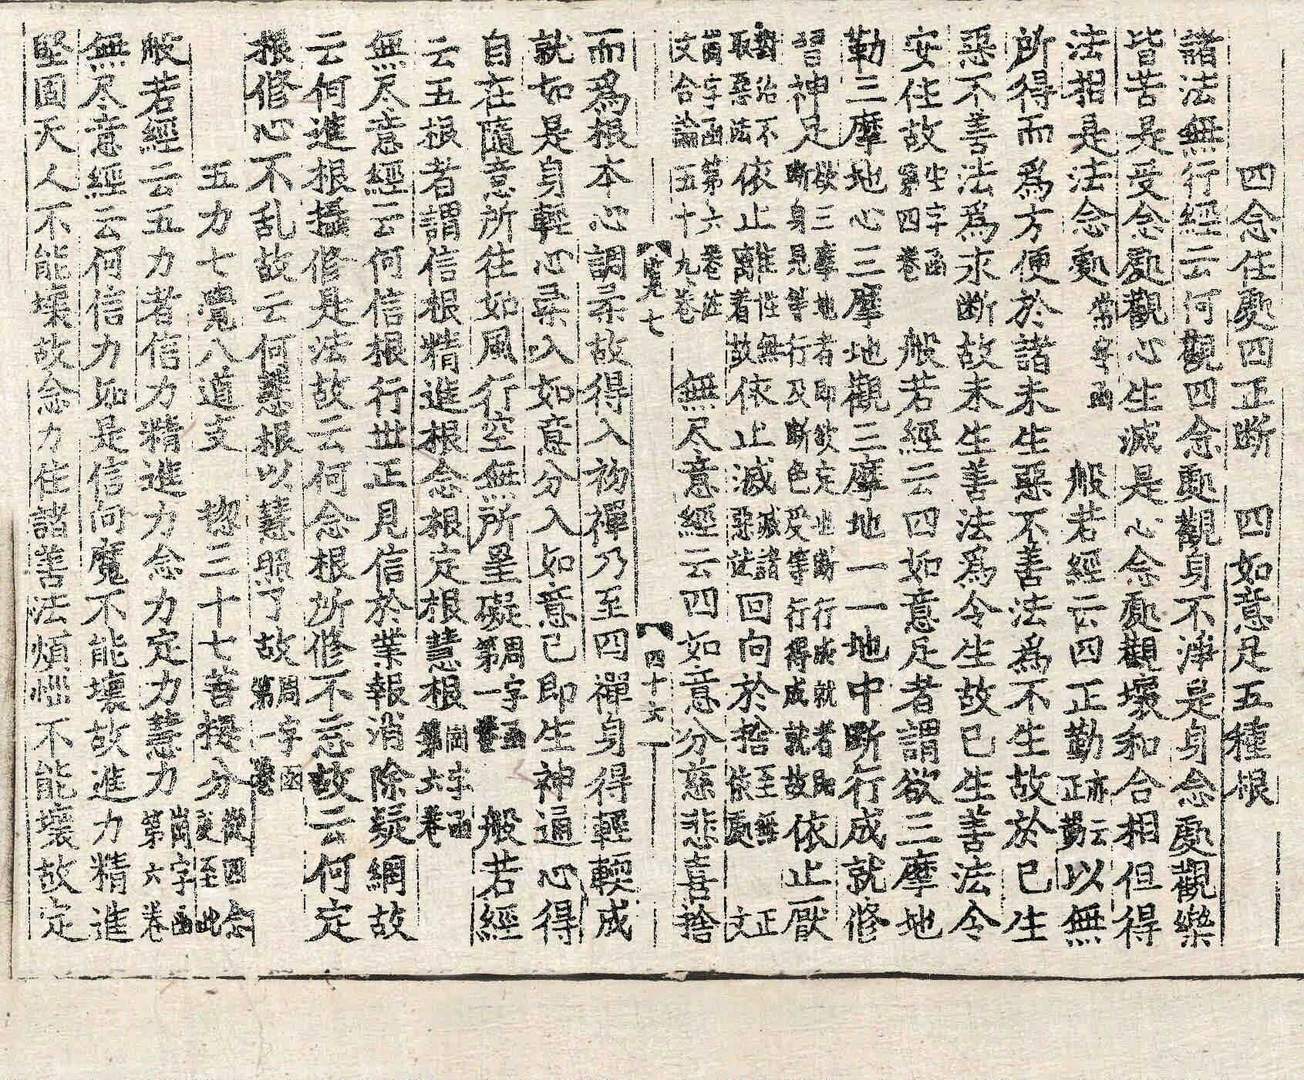 四念住處四正斷　四如意足五種根
諸法無行經云何觀四念處觀身不淨是身念處觀樂
皆苦是受念處觀心生滅是心念處觀壞和合相但得
法相是法念處常字函　般若經云四正勤亦云正勤以無
所得而爲方便於諸未生惡不善法爲不生故於已生
惡不善法爲求斷故未生善法爲令生故已生善法令
安住故生字函第四卷　般若經云四如意足者謂欲三摩地
勤三摩地心三摩地觀三摩地一一地中斷行成就修
習神足欲三摩地者即欲定也斷行成就者即斷身見等行及斷色受等行得成就故依止厭
對治不取惡法依止離著故依止滅滅諸惡法回向於捨
崗字函第六卷並文合論五十九卷　無尽意經云四如意分慈悲喜捨
覽七　四十六
而爲根本心調柔故得入初禪乃至四禪身得輕輭成
就如是身輕心柔入如意分入如意已即生神通心得
自在隨意所往如風行空無所罣礙周字函第一卷　般若經
云五根者謂信根精進根念根定根慧根崗字函第六卷
無尽意經云何信根行世正見信於業報消除疑網故
云何進根攝修是法故云何念根所修不忘故云何定
根修心不乱故云何慧根以慧照了故周字函第一卷
五力七覺八道支　惣三十七善提分從四念處至此
般若經云五力者信力精進力念力定力慧力崗字函第六卷
無尽意經云何信力如是信向魔不能壞故進力精進
堅固天人不能壞故念力住諸善法煩惱不能壞故定